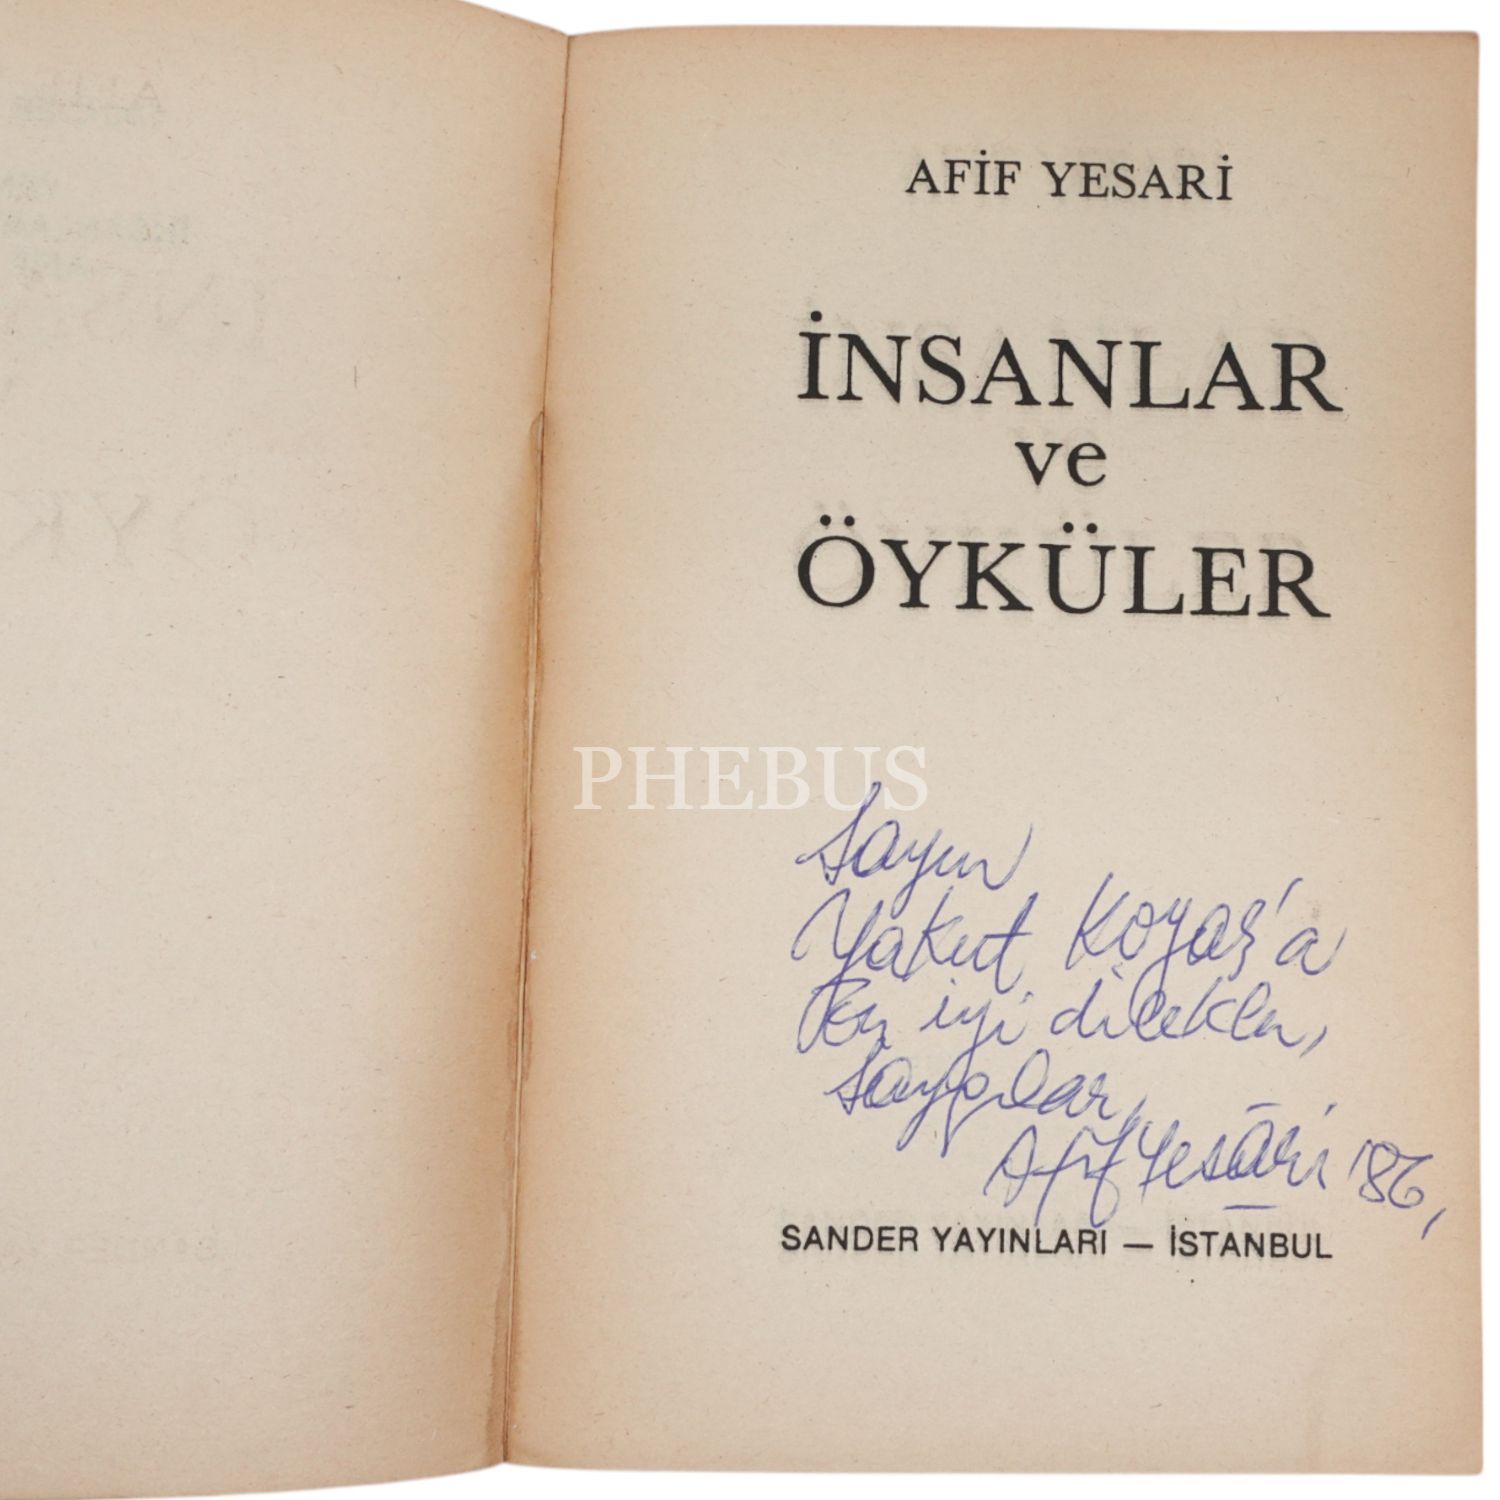 AFİF YESARİ
İNSANLAR
ve
ÖYKÜLER
PHEBUS
Sayın
Yakut Koyaş'a
En iyi dilekler,
Saygılar,
Afif Yesâri '86,
SANDER YAYINLARI — İSTANBUL